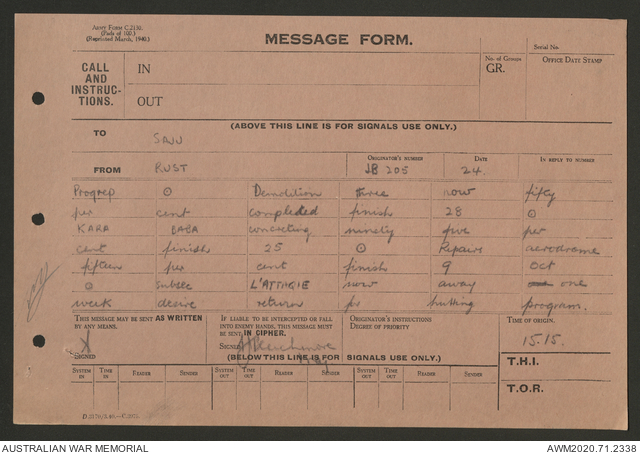 Army Form C.2130.
(Pads of 100.)
(Reprinted March, 1940.)
MESSAGE FORM.
Serial No.
CALL AND INSTRUC-TIONS.
IN
OUT
No. of Groups
GR.
OFFICE DATE STAMP
(ABOVE THIS LINE IS FOR SIGNALS USE ONLY.)
TO
FROM RUST
ORIGINATOR'S NUMBER JB 205
DATE 24.
IN REPLY TO NUMBER
Progrep ⊙ Demolition three now fifty
per cent completed finish 28 ⊙
KARA BABA concreting ninety five per
cent finish 25 ⊙ Repairs aerodrome
fifteen per cent finish 9 Oct
⊙ now away one
week desire return for hutting program.
THIS MESSAGE MAY BE SENT AS WRITTEN BY ANY MEANS.
SIGNED
IF LIABLE TO BE INTERCEPTED OR FALL INTO ENEMY HANDS, THIS MESSAGE MUST BE SENT IN CIPHER.
SIGNED
ORIGINATOR'S INSTRUCTIONS
DEGREE OF PRIORITY
TIME OF ORIGIN.
15.15.
(BELOW THIS LINE IS FOR SIGNALS USE ONLY.)
SYSTEM IN TIME IN READER SENDER SYSTEM OUT TIME OUT READER SENDER SYSTEM OUT TIME OUT READER SENDER
T.H.I.
T.O.R.
AUSTRALIAN WAR MEMORIAL
AWM2020.71.2338